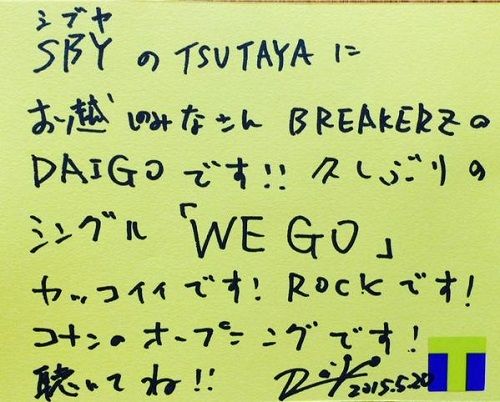 シブヤ
SBYのTSUTAYAに
お越しのみなさん BREAKERZの
DAIGOです!! 久しぶりの
シングル「WE GO」
カッコイイです! ROCKです!
コナンのオープニングです!
聴いてね!! 2015.5.20
T